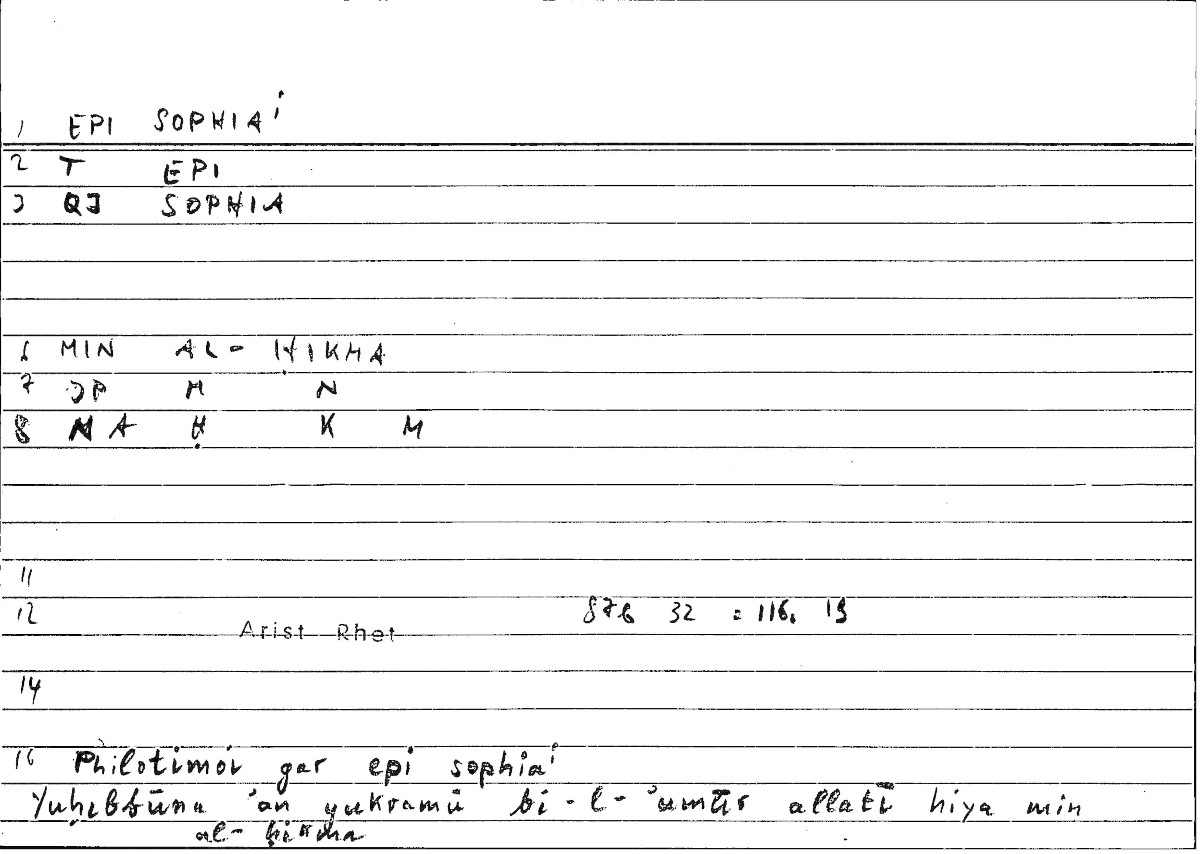 1 EPI SOPHIAⁱ
2 T EPI
3 QJ SOPHIA
6 MIN AL- ḤIKMA
7 JP M N
8 NA Ḥ K M
11
12 Arist Rhet 87b 32 = 116, 19
14
16 Philotimoi gar epi sophiaⁱ
Yuḥibbūna 'an yukramū bi-l-'umūr allatī hiya min
al-ḥikma